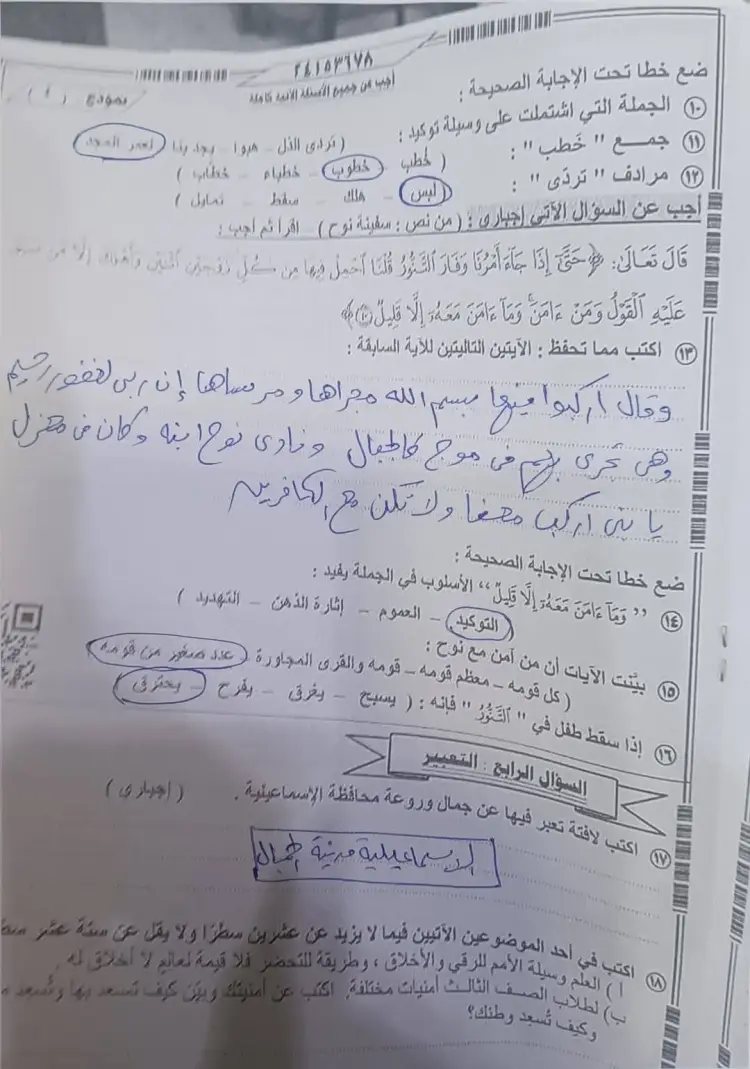 ٢٤١٥٣٦٧٨
أجب عن جميع الأسئلة الآتية كاملة
نموذج ( ٤ )
ضع خطا تحت الإجابة الصحيحة :
١٠ الجملة التي اشتملت على وسيلة توكيد : ( تردى الذل - هبوا - يجد بنا - لعمر المجد
١١ جمــع " خَطب " : ( خُطب - خطوب - خطباء - خطاب )
١٢ مرادف " تردّى " : لبس - هلك - سقط - تمايل )
أجب عن السؤال الآتي إجبارى : ( من نص : سفينة نوح ) - اقرأ ثم أجب :
قَالَ تَعَالَىٰ: ﴿حَتَّىٰٓ إِذَا جَآءَ أَمْرُنَا وَفَارَ ٱلتَّنُّورُ قُلْنَا ٱحْمِلْ فِيهَا مِن كُلٍّ زَوْجَيْنِ ٱثْنَيْنِ وَأَهْلَكَ إِلَّا مَن سبق
عَلَيْهِ ٱلْقَوْلُ وَمَنْ ءَامَنَ وَمَآ ءَامَنَ مَعَهُۥٓ إِلَّا قَلِيلٌ﴾
١٣ اكتب مما تحفظ : الآيتين التاليتين للآية السابقة :
وقال اركبوا فيها بسم الله مجراها ومرساها إن ربى لغفور رحيم
وهى تجرى بهم فى موج كالجبال ونادى نوح ابنه وكان فى معزل
يا بنى اركب معنا ولا تكن مع الكافرين
ضع خطا تحت الإجابة الصحيحة :
١٤ " وَمَآ ءَامَنَ مَعَهُۥٓ إِلَّا قَلِيلٌ " الأسلوب في الجملة يفيد :
التوكيد - العموم - إثارة الذهن - التهديد )
١٥ بيّنت الآيات أن من آمن مع نوح :
( كل قومه - معظم قومه - قومه والقرى المجاورة - عدد صغير من قومه
١٦ إذا سقط طفل في " ٱلتَّنُّورُ " فإنه : ( يسبح - يغرق - يفرح - يحترق
السؤال الرابع : التعبير
١٧ اكتب لافتة تعبر فيها عن جمال وروعة محافظة الإسماعيلية . ( إجبارى )
الإسماعيلية مدينة الجمال
١٨ اكتب في أحد الموضوعين الآتيين فيما لا يزيد عن عشرين سطرًا ولا يقل عن ستة عشر
أ ) العلم وسيلة الأمم للرقي والأخلاق ، وطريقة للتحضر فلا قيمة لعالم لا أخلاق له .
ب) لطلاب الصف الثالث أمنيات مختلفة. اكتب عن أمنيتك وبيّن كيف تسعد بها وتُسعد
وكيف تُسعِد وطنك؟